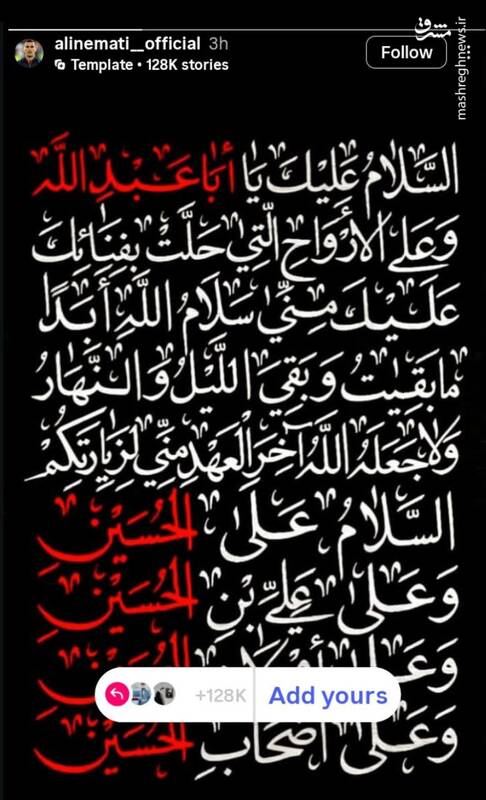 alinemati__official 3h
Template • 128K stories
Follow
مشرق
mashreghnews.ir
السَّلامُ عَلَيْكَ يَا أَبَا عَبْدِ اللَّه
وَعَلَى الأَرْوَاحِ الَّتِي حَلَّتْ بِفِنَائِكَ
عَلَيْكَ مِنِّي سَلَامُ اللَّهِ أَبَدًا
مَا بَقِيتُ وَبَقِيَ اللَّيْلُ وَالنَّهَارُ
وَلَاجَعَلَهُ اللَّهُ آخِرَ الْعَهْدِ مِنِّي لِزِيَارَتِكُمْ
السَّلَامُ عَلَى الْحُسَيْنِ
وَعَلَى عَلِيِّ بْنِ الْحُسَيْنِ
وَعَلَى
+128K Add yours
وَعَلَى أَصْحَابِ الْحُسَيْنِ